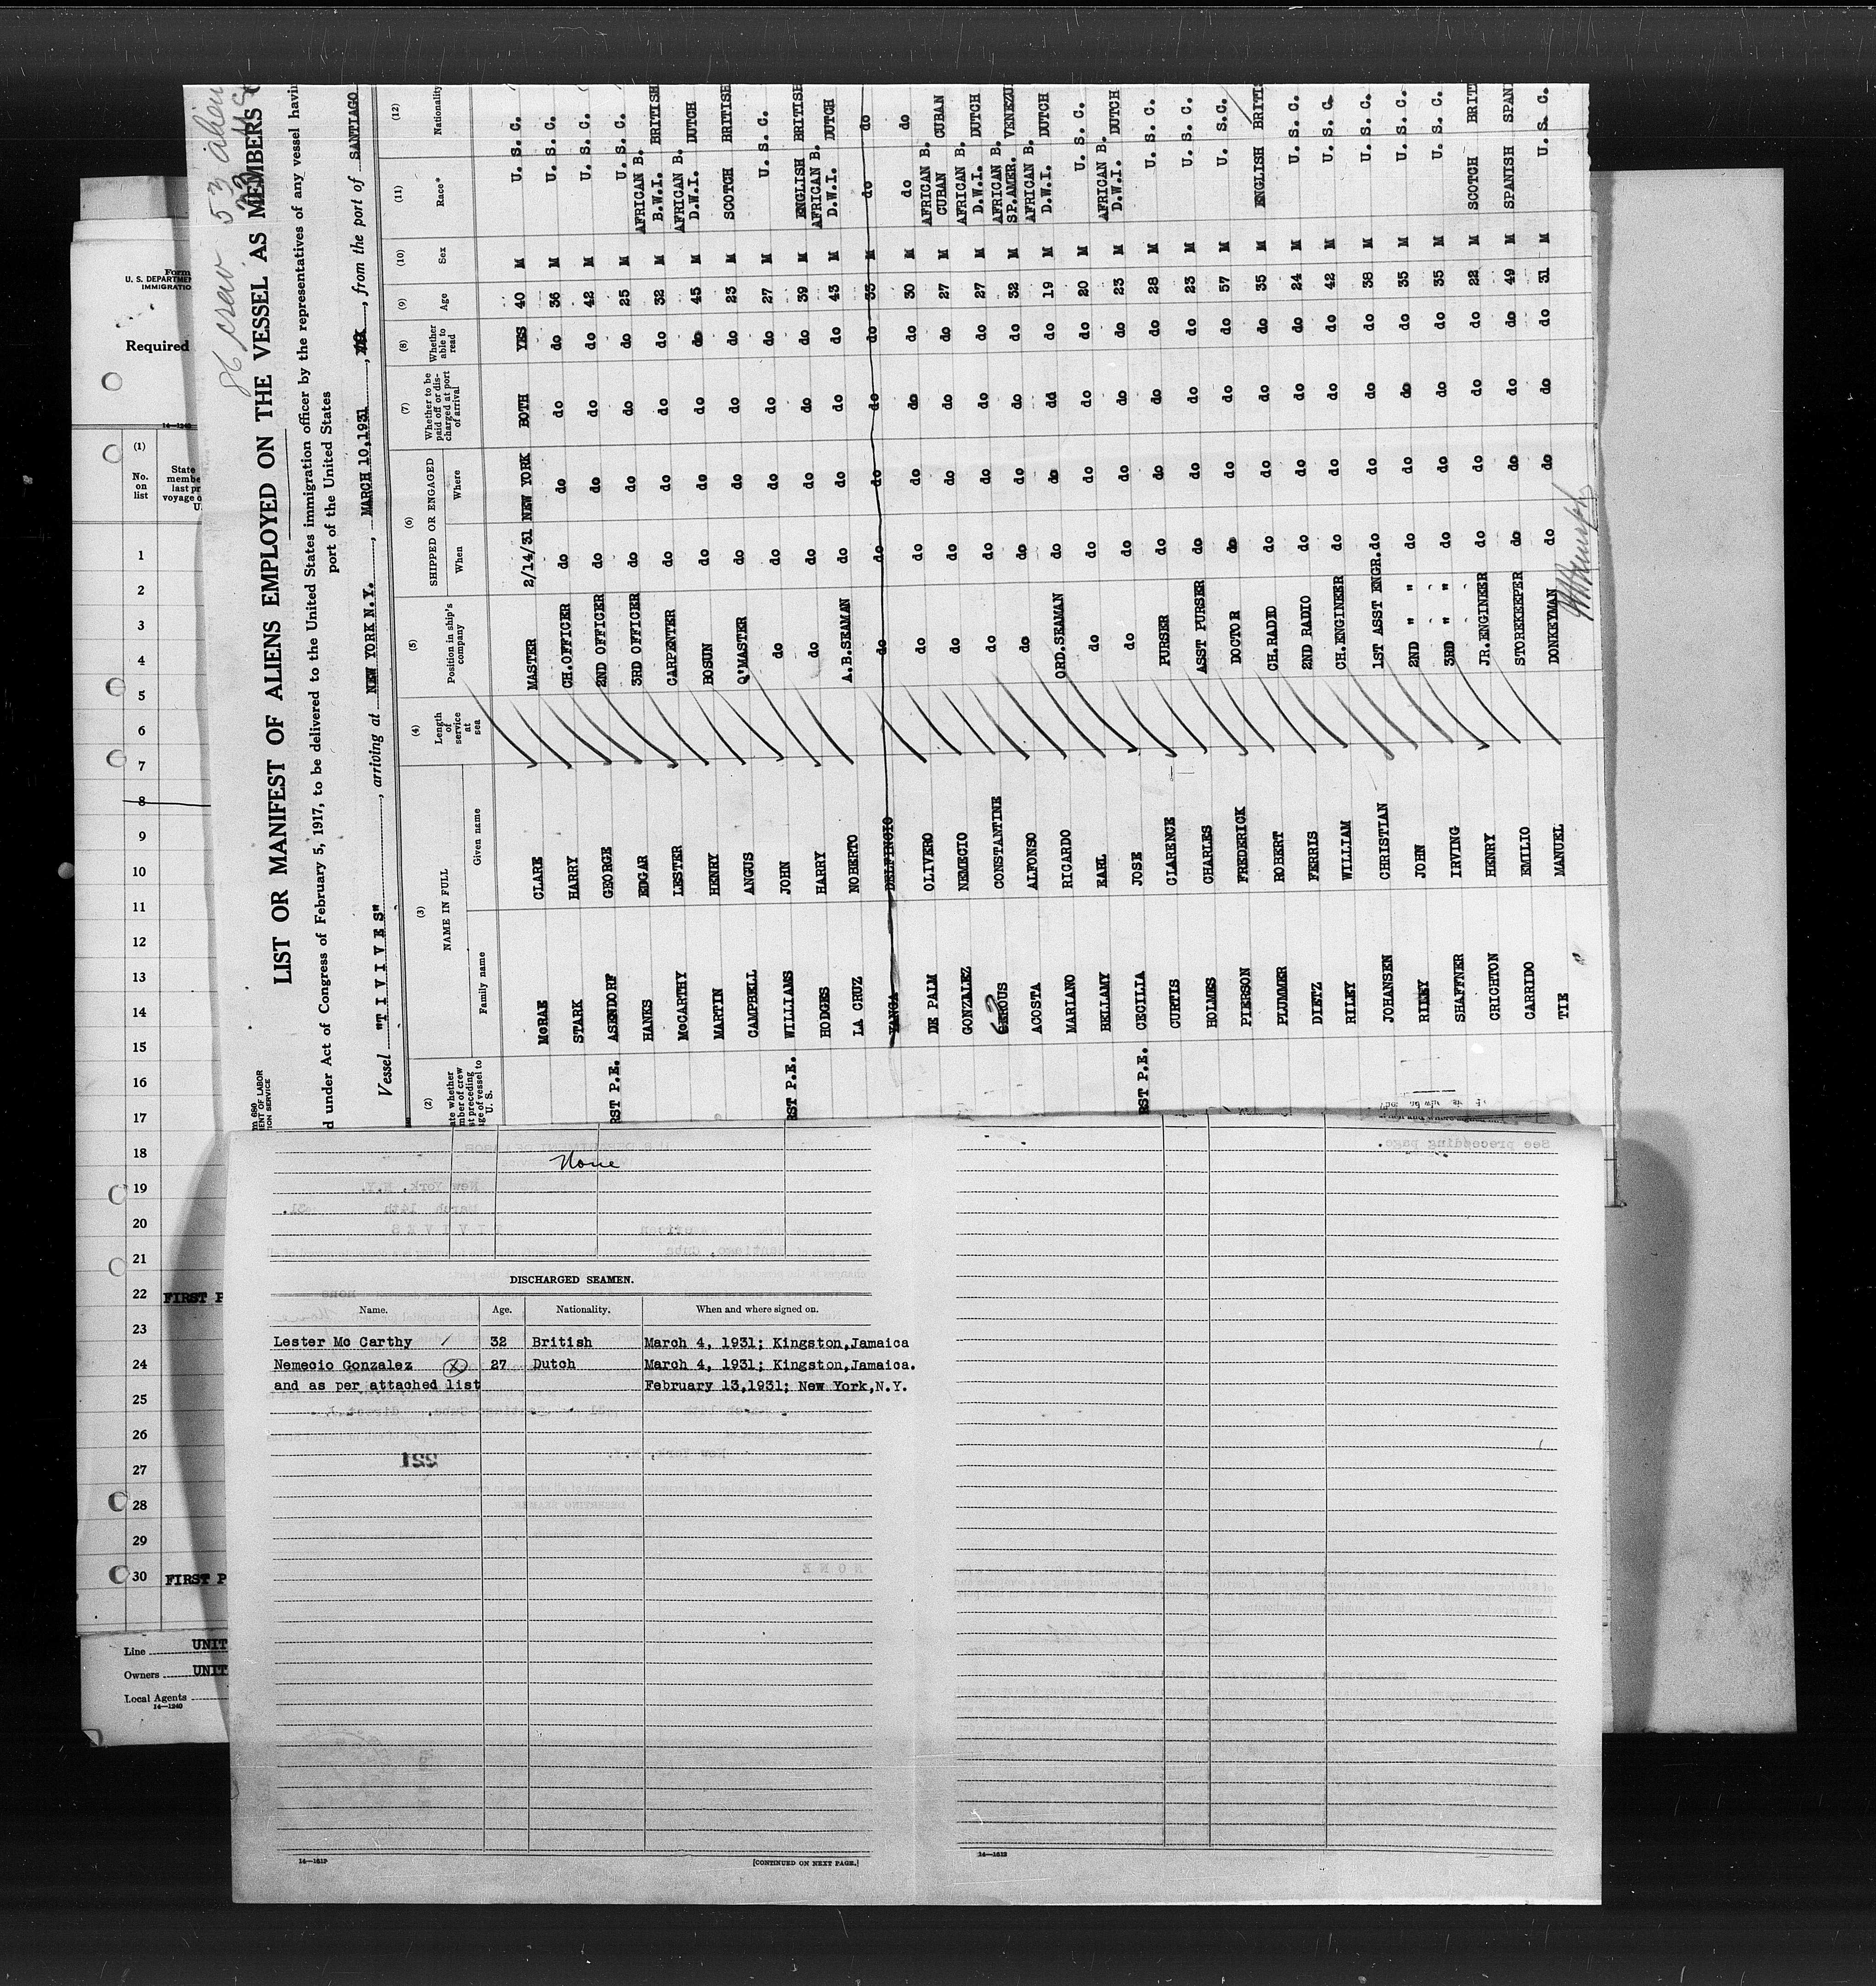 Form
U. S. DEPARTMEN
IMMIGRATIO
Required
14—1240
(1)
No.
on
list
State
membe
last pr
voyage o
U.
1
2
3
4
5
6
7
8
9
10
11
12
13
14
15
16
17
18
19
20
21
22 FIRST P
23
24
25
26
27
28
29
30 FIRST P
Line UNIT
Owners UNIT
Local Agents
14—1240
86 crew 53 alien
LIST OR MANIFEST OF ALIENS EMPLOYED ON THE VESSEL AS MEMBERS
d under Act of Congress of February 5, 1917, to be delivered to the United States immigration officer by the representatives of any vessel havin
port of the United States
Vessel "T I V I V E S", arriving at NEW YORK N.Y., MARCH 10,1931, from the port of SANTIAGO
(2) (3) (4) (5) (6) (7) (8) (9) (10) (11) (12)
ate whether
mber of crew
st preceding
ge of vessel to
U. S.
NAME IN FULL
Family name
Given name
Length
of
service
at
sea
Position in ship's
company
SHIPPED OR ENGAGED
When
Where
Whether to be
paid off or dis-
charged at port
of arrival
Whether
able to
read
Age
Sex
Race*
Nationality
McRAE CLARE MASTER 2/14/31 NEW YORK BOTH YES 40 M U. S. C.
STARK HARRY CH.OFFICER do do do do 36 M U. S. C.
RST P.E. ASENDORF GEORGE 2ND OFFICER do do do do 42 M U. S. C.
HANKS EDGAR 3RD OFFICER do do do do 25 M U. S. C.
McCARTHY LESTER CARPENTER do do do do 32 M AFRICAN B. B.W.I. BRITISH
MARTIN HENRY BOSUN do do do do 45 M AFRICAN B. D.W.I. DUTCH
CAMPBELL ANGUS Q'MASTER do do do do 23 M SCOTCH BRITISH
RST P.E. WILLIAMS JOHN do do do do do 27 M U. S. C.
HODGES HARRY do do do do do 39 M ENGLISH BRITISH
LA CRUZ NOBERTO A.B.SEAMAN do do do do 43 M AFRICAN B. D.W.I. DUTCH
YANGA DELFINCIO do do do do do 35 M do do
DE PALM OLIVERO do do do do do 30 M do do
GONZALEZ NEMECIO do do do do do 27 M AFRICAN B. CUBAN CUBAN
CONSTANTINE do do do do do 27 M AFRICAN B. D.W.I. DUTCH
ACOSTA ALFONSO do do do do do 32 M AFRICAN B. SP.AMER. VENEZU
MARIANO RICARDO ORD.SEAMAN do do dd do 19 M AFRICAN B. D.W.I. DUTCH
BELLAMY EARL do do do do do 20 M U. S. C.
RST P.E. CECILIA JOSE do do do do do 23 M AFRICAN B. D.W.I. DUTCH
CURTIS CLARENCE PURSER do do do do 28 M U. S. C.
HOLMES CHARLES ASST PURSER do do do do 23 M U. S. C.
PIERSON FREDERICK DOCTOR do do do do 57 M U. S.C.
PLUMMER ROBERT CH.RADIO do do do do 35 M ENGLISH BRITI
DIETZ FERRIS 2ND RADIO do do do do 24 M U. S. C.
RILEY WILLIAM CH.ENGINEER do do do do 42 M U. S. C.
JOHANSEN CHRISTIAN 1ST ASST ENGR. do do do do 38 M U. S. C.
RILEY JOHN 2ND " " do do do do 35 M U. S. C.
SHAFFNER IRVING 3RD " " do do do do 35 M U. S. C.
CRIGHTON HENRY JR.ENGINEER do do do do 22 M SCOTCH BRIT
CARRIDO EMILIO STOREKEEPER do do do do 49 M SPANISH SPAN
TIE MANUEL DONKEYMAN do do do do 31 M U. S. C.
None
DISCHARGED SEAMEN.
Name. Age. Nationality. When and where signed on.
Lester Mc Carthy 32 British March 4, 1931; Kingston,Jamaica
Nemecio Gonzalez 27 Dutch March 4, 1931; Kingston,Jamaica.
and as per attached list February 13,1931; New York,N.Y.
221
14—1613
[CONTINUED ON NEXT PAGE.]
14—1613
See preceeding page.